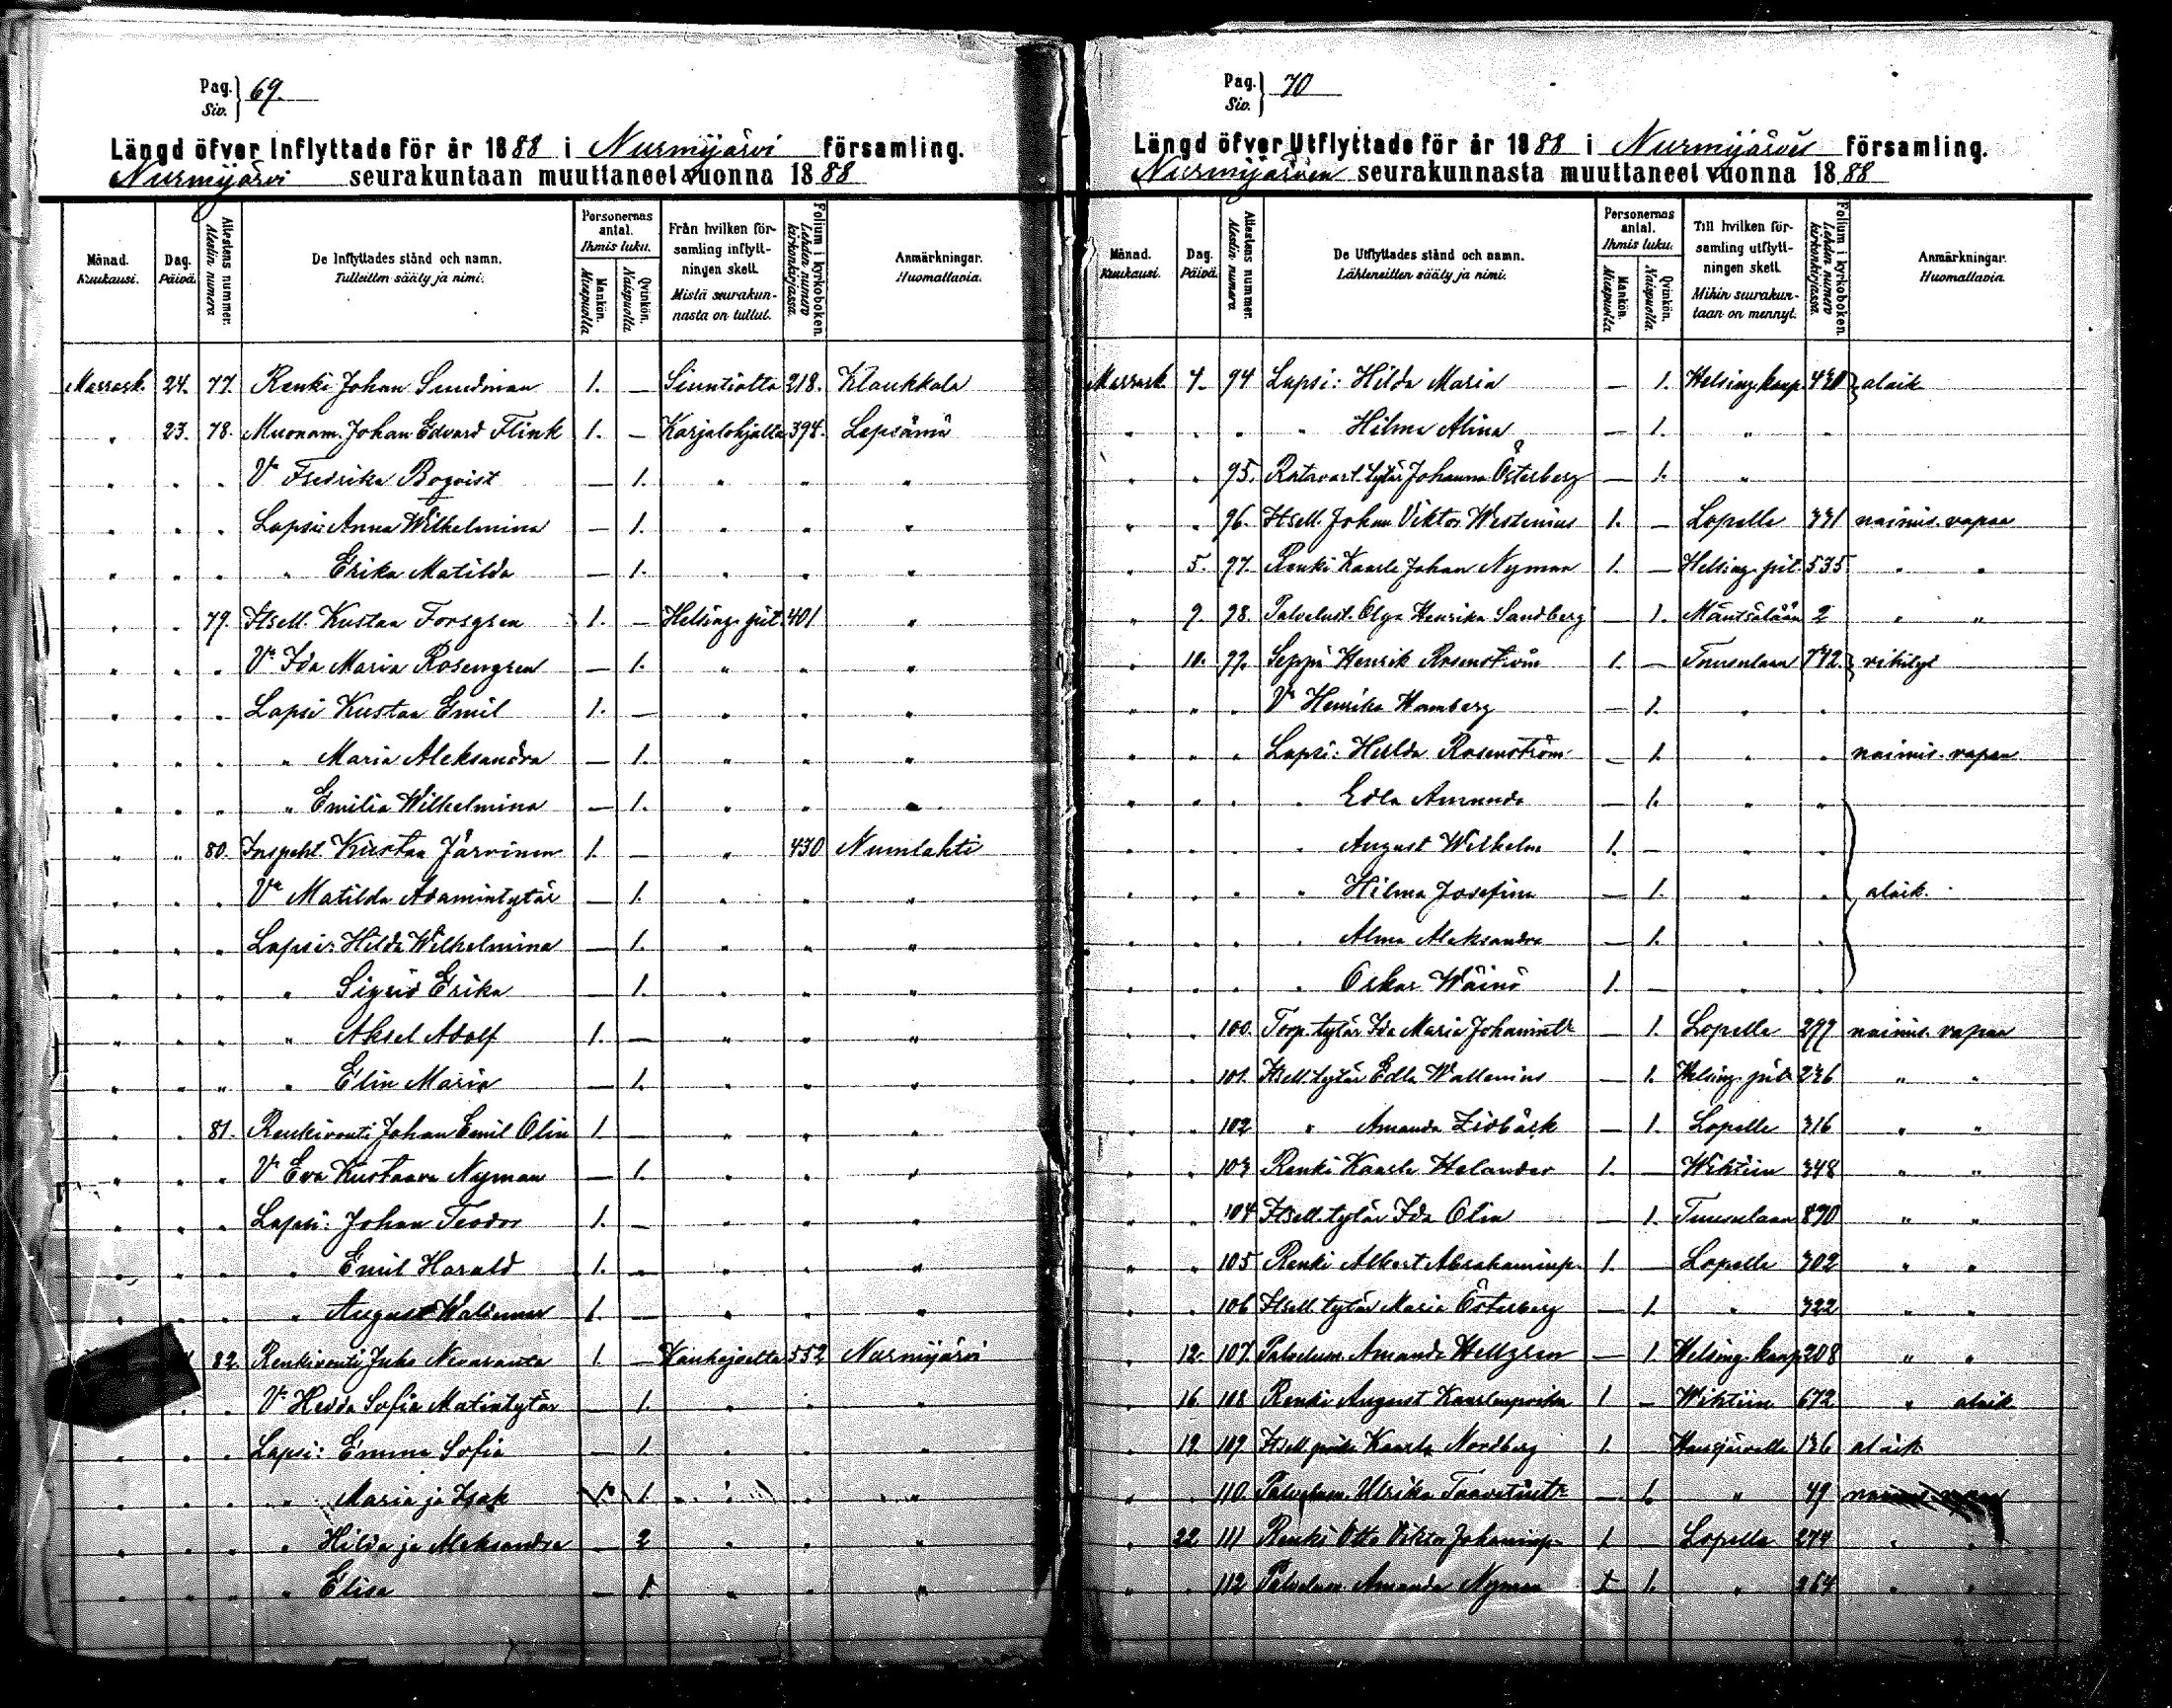 Pag. Siv. } 69.
Längd öfver Inflyttade för år 1888 i Nurmijärvi församling.
Nurmijärvi seurakuntaan muuttaneet vuonna 1888
Månad. Kuukausi. | Dag. Päivä. | Attestens nummer. Atestin numero | De Inflyttades stånd och namn. Tulleitten sääty ja nimi. | Personernas antal. Ihmis luku. Mankön. Miespuolia | Qvinkön. Naispuolia. | Från hvilken församling inflyttningen skett. Mistä seurakunnasta on tullut. | Folium i kyrkoboken. Lehden numero kirkonkirjassa. | Anmärkningar. Huomattavia.
Marrask. 24. 77. Renki Johan Sundman 1. — Siuntiolta 218. Klaukkala
" 23. 78. Muonam. Johan Edvard Flink 1. — Karjalohjalta 394. Lepsämä
" " " Vo Fredrika Boqvist — 1. " " "
" " " Lapsi: Anna Wilhelmina — 1. " " "
" " " " Erika Matilda — 1. " " "
" " 79. Itsell. Kustaa Forsgren 1. — Helsing. pit. 401 "
" " " Vo Ida Maria Rosengren — 1. " " "
" " " Lapsi Kustaa Emil 1. — " " "
" " " " Maria Aleksandra — 1. " " "
" " " " Emilia Wilhelmina — 1. " " "
" " 80. Inspeht. Kustaa Järvinen 1. — " 430 Numlahti
" " " Vo Matilda Adamintytär — 1. " " "
" " " Lapsi: Hilda Wilhelmina — 1. " " "
" " " " Sigrid Erika — 1. " " "
" " " " Aksel Adolf 1. — " " "
" " " " Elin Maria — 1. " " "
" " 81. Renkivouti Johan Emil Olin 1. — " " "
" " " Vo Eva Kustaava Nyman — 1. " " "
" " " Lapsi: Johan Teodor 1. — " " "
" " " " Emil Harald 1. — " " "
" " " " August Walimer 1. — " " "
82. Renkivouti Juho Nevaranta 1. — Wanhajoelta 552 Nurmijärvi
" " Vo Hedda Sofia Matintytär — 1. " " "
" " " Lapsi: Emma Sofia — 1. " " "
" " " " Maria ja Isak 1 1. " " "
" " " " Hilda ja Aleksandra — 2 " " "
" " " " Elisa — 1 " " "
Pag. Siv. } 70
Längd öfver Utflyttade för år 1888 i Nurmijärvi församling.
Nurmijärven seurakunnasta muuttaneet vuonna 1888
Månad. Kuukausi. | Dag. Päivä. | Attestens nummer. Atestin numero | De Utflyttades stånd och namn. Lähteneitten sääty ja nimi. | Personernas antal. Ihmis luku. Mankön. Miespuolia | Qvinkön. Naispuolia. | Till hvilken församling utflyttningen skett. Mihin seurakuntaan on mennyt. | Folium i kyrkoboken. Lehden numero kirkonkirjassa. | Anmärkningar. Huomattavia.
Marrask. 4. 94 Lapsi: Hilda Maria — 1. Helsing. kaup. 430 } alaik.
" " " " Hilma Alina — 1. " "
" " 95. Ratavart. tytär Johanna Österberg — 1. "
" " 96. Itsell. Johan Viktor Westenius 1. — Lopelle 331 naimis. vapaa
" 5. 97. Renki Kaarle Johan Nyman 1. — Helsing. pit. 535 " "
" 9. 98. Palvelust. Olga Henrika Sandberg — 1. Mäntsälään 2 " "
" 10. 99. Seppä Henrik Rosenström 1. — Tuusulaan 742. } vihityt
" " " Vo Henrika Hamberg — 1. " "
" " " Lapsi: Hulda Rosenström — 1. " " naimis. vapaa
" " " " Edla Amanda — 1. " "
" " " " August Wilhelm 1. — " "
" " " " Hilma Josefina — 1. " " } alaik.
" " " " Alma Aleksandra — 1. " "
" " " " Oskar Wäinö 1. — " "
" " 100. Torp. tytär Ida Maria Johanintr — 1. Lopelle 299 naimis. vapaa
" " 101. Itsell. tytär Edla Wallenius — 1. Helsing. pit. 236 " "
" " 102 " Amanda Lidbäck — 1. Lopelle 316 " "
" " 103 Renki Kaarle Helander 1. — Wihtiin 348 " "
" " 104 Itsell. tytär Ida Olin — 1. Tuusulaan 890 " "
" " 105 Renki Albert Abrahaminp. 1. — Lopelle 302 " "
" " 106 Itsell. tytär Maria Österberg — 1. " 322 " "
" 12. 107. Palveluss. Amanda Hellgren — 1. Helsing. kaup. 208 " "
" 16. 108 Renki August Kaarlenpoika 1 — Wihtiin 672 " alaik
" 19 109 Itsell. poika Kaarle Nordberg 1 Hausjärvelle 136 alaik
" " 110. Palveluss. Ulrika Taavetintr — 1. " 49 naimis. vapaa
" 22 111 Renki Otto Viktor Johaninp. 1 Lopelle 274 " "
" " 112 Palveluss. Amanda Nyman 1. " 264 " "